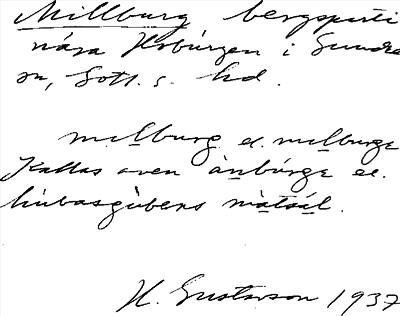 Millburg bergsparti
nära Hoburgen i Sundre
sn, Gotl. s. hd.
milburg el. milburge
Kallas även ànbúrge el.
húbasgùbens màtsál.
H. Gustavson 1937